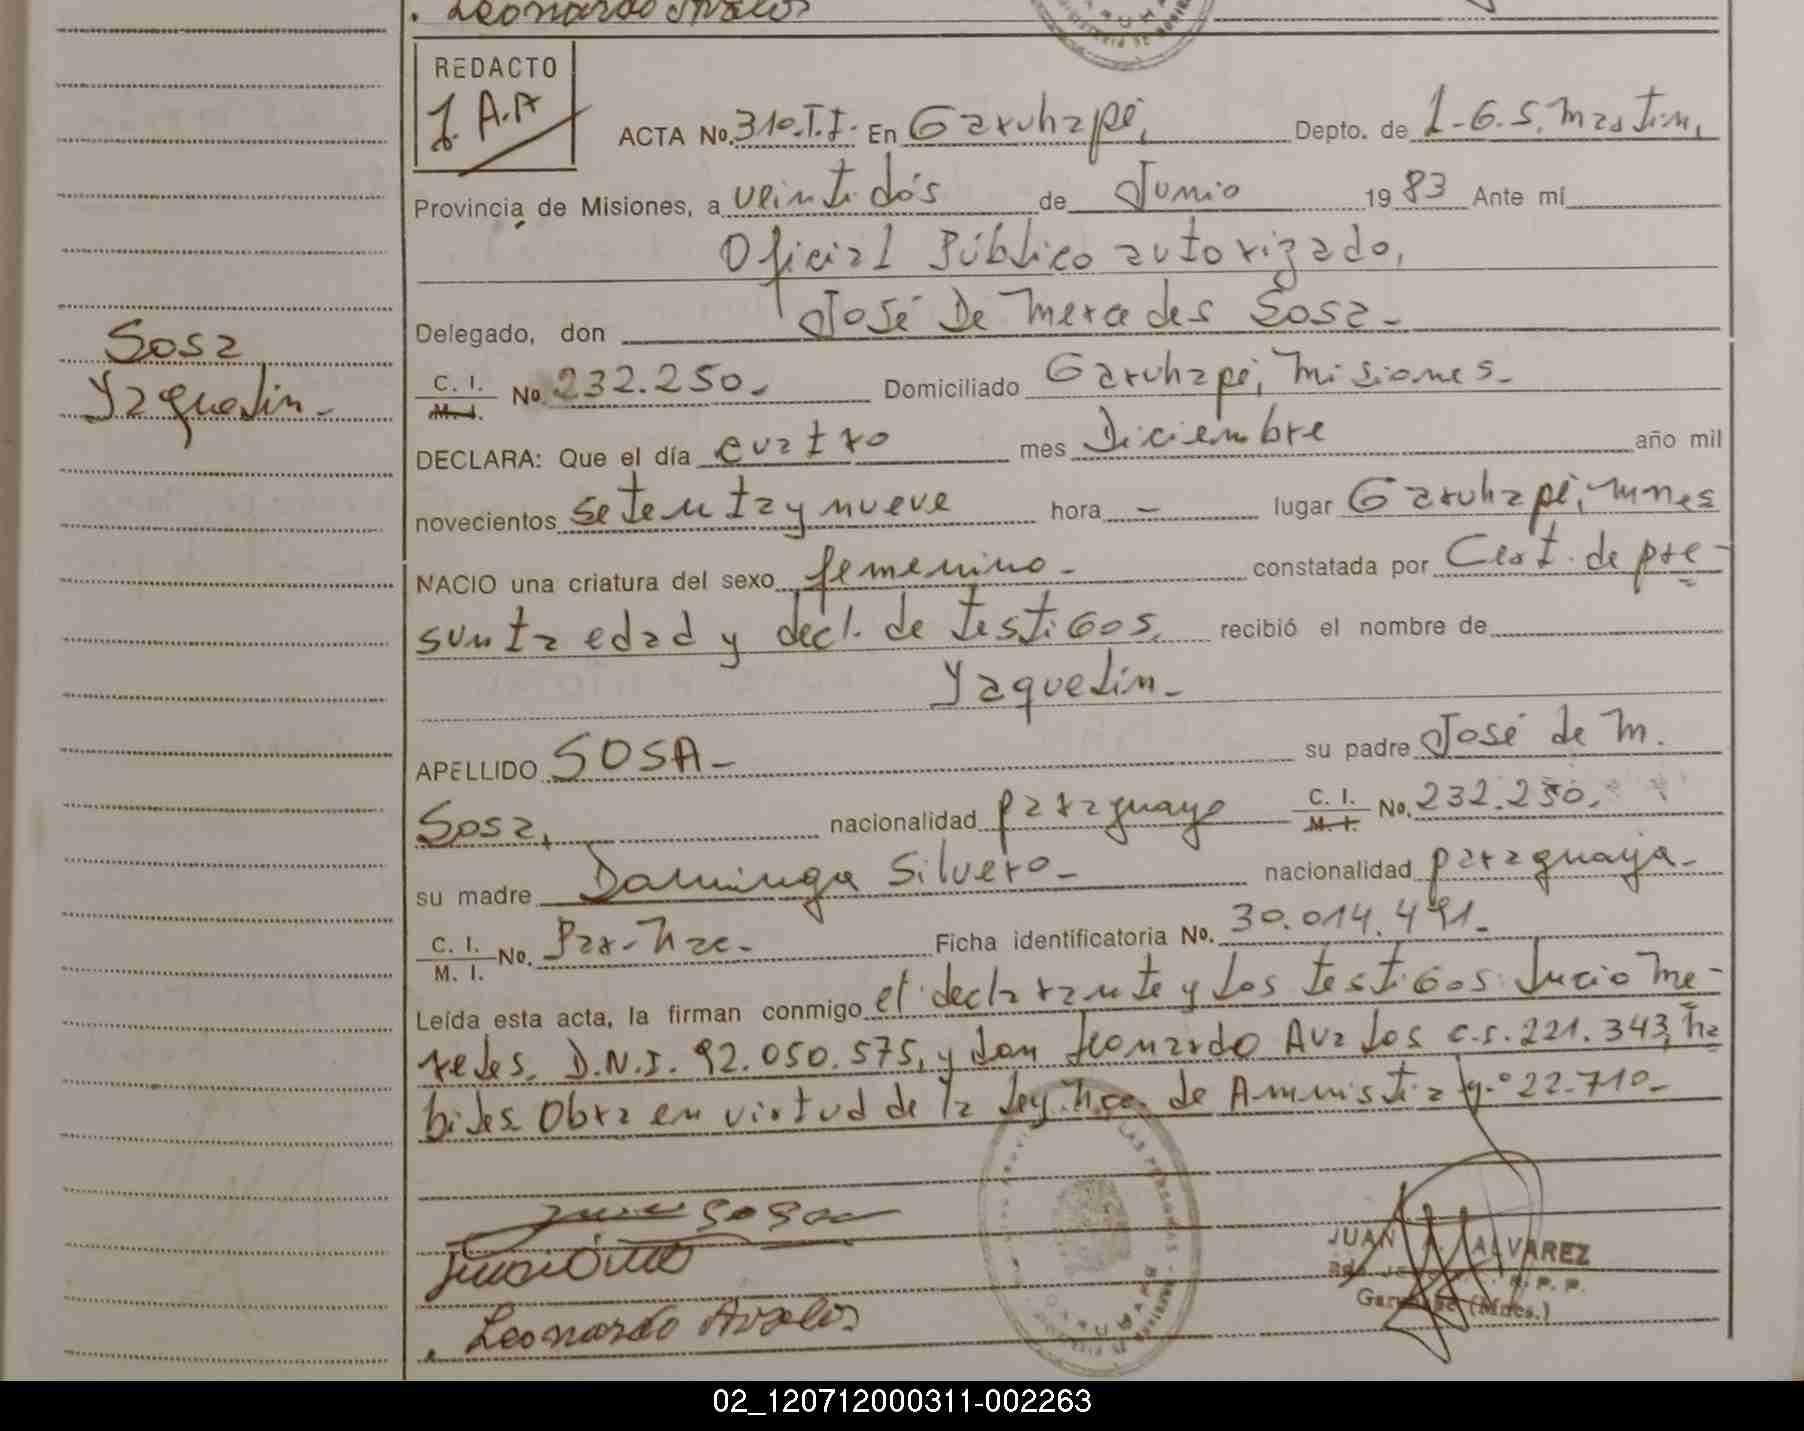 Leonardo Avalos
REDACTO
J. A.A
ACTA No. 310.T.I. En Garuhapé, Depto. de L.G.S. Martin,
Provincia de Misiones, a veintidós de Junio 1983 Ante mí
Oficial Público autorizado,
Delegado, don José De Mercedes Sosa-
C. I. M. I. No 232.250.- Domiciliado Garuhapé, Misiones.-
Sosa
Yaquelin-
DECLARA: Que el día cuatro mes Diciembre año mil
novecientos setenta y nueve hora - lugar Garuhapé, Mnes
NACIO una criatura del sexo femenino- constatada por Cert. de pre-
sunta edad y decl. de testigos. recibió el nombre de
Yaquelin-
APELLIDO SOSA- su padre José de M.
Sosa, nacionalidad paraguayo C. I. M. I. No. 232.250.
su madre Dominga Silvero- nacionalidad paraguaya-
C. I. M. I. No. Ficha identificatoria No. 30.014.491.-
Leída esta acta, la firman conmigo el declarante y los testigos: Lucio Me-
reles. D.N.I. 92.050.575, y don Leonardo Avalos C.I. 221.343, há
biles Obra en virtud de la Ley de Amnistia Nº 22.710-
Sosa
Leonardo Avalos
JUAN A. ALVAREZ
R. P. P.
Garuhapé (Mnes.)
02_120712000311-002263